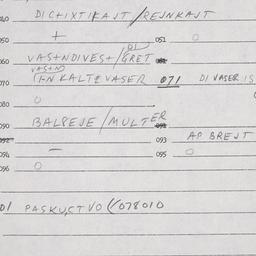 040 DICTIXTIKAJT/REJNKAJT
050 + 051 O
060 VASTNDIVEST/GRET 061
DI
070 VASTND
(IN KALTE VASER 071 DI VASER IS
080 O
090 BALPEJE/MULTER 091
092 093 AP BREJT
094 – 095 O
096 O
DI PASKUSTVO (078010